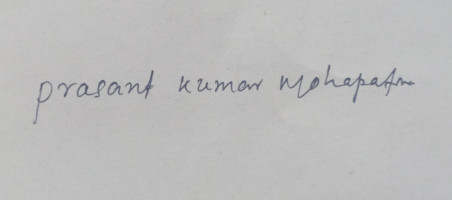 prasant kumar Mohapatra